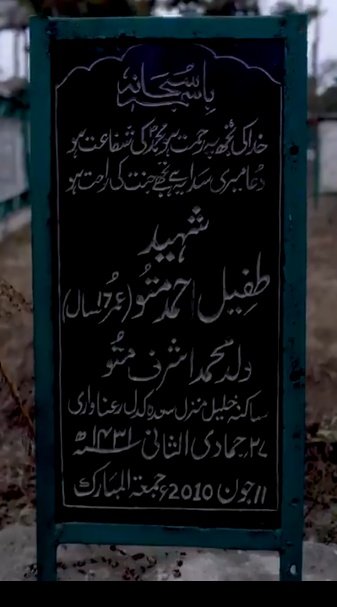 باسمہ سبحانہ
خدا کی تجھ پہ رحمت ہو محمدؐ کی شفاعت ہو
دعا میری سدا یہ ہے تجھے جنت کی راحت ہو
شہید
طفیل احمد متو (عمر 17 سال)
ولد محمد اشرف متو
ساکنہ خلیل منزل سدہ کدل رعناواری
۲۷ جمادی الثانی ۱۴۳۱ھ
۱۱ جون 2010ء جمعۃ المبارک